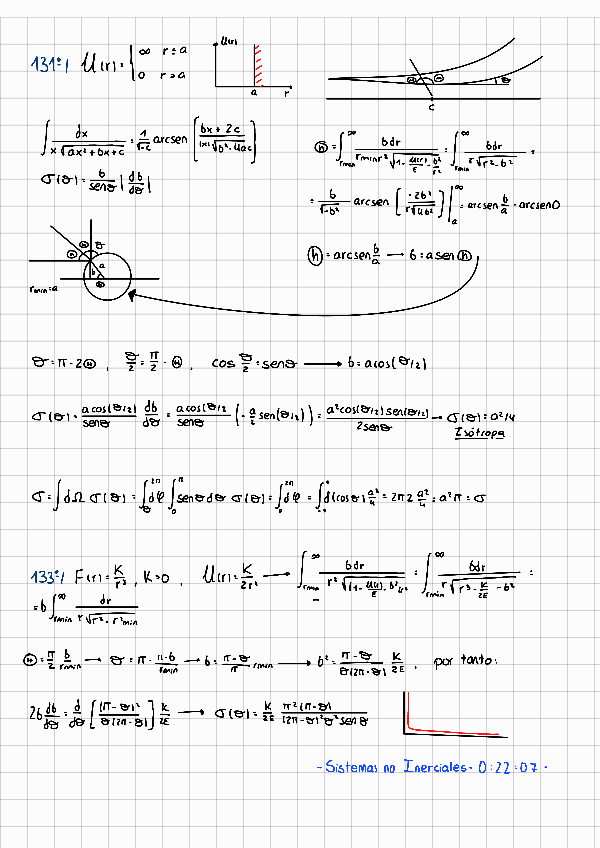 131º| U(r) = { ∞ r ≤ a
0 r > a
U(r)
a r
Θ Θ θ
C
∫ dx / (x √(ax² + bx + c)) = 1/√-c arcsen [ (bx + 2c) / (|x| √(b² - 4ac)) ]
σ(θ) = b/senθ | db/dθ |
Θ = ∫_rmin^∞ bdr / (r² √(1 - U(r)/E - b²/r²)) = ∫^∞ bdr / (r √(r² - b²)) =
= b/√-b² arcsen [ -2b² / (r √4b²) ] |_a^∞ = arcsen b/a - arcsen 0
Θ = arcsen b/a → b = a sen Θ
Θ θ
a
b Θ
rmin = a
θ = π - 2Θ , θ/2 = π/2 - Θ , cos θ/2 = senΘ → b = a cos(θ/2)
σ(θ) = a cos(θ/2)/senθ db/dθ = a cos(θ/2)/senθ (- a/2 sen(θ/2)) = a² cos(θ/2) sen(θ/2) / 2senθ → σ(θ) = a²/4
Isótropa
σ = ∫ dΩ σ(θ) = ∫_0^2π dφ ∫_0^π senθ dθ σ(θ) = ∫_0^2π dφ = ∫ d(cosθ) a²/4 = 2π 2 a²/4 = a²π = σ
133º| F(r) = K/r³ , K>0 , U(r) = K/2r² → ∫_rmin^∞ bdr / (r² √(1 - U(r)/E - b²/r²)) = ∫_rmin^∞ bdr / (r √(r² - K/2E - b²)) =
= b ∫_rmin^∞ dr / (r √(r² - r²min))
Θ = π/2 b/rmin → θ = π - π·b/rmin → b = (π-θ)/π rmin → b² = (π-θ)/(θ(2π-θ)) K/2E , por tanto:
2b db/dθ = d/dθ [ (π-θ)² / (θ(2π-θ)) ] K/2E → σ(θ) = K/2E π²(π-θ) / ((2π-θ)² θ² senθ)
- Sistemas no Inerciales - 0:22:07 -